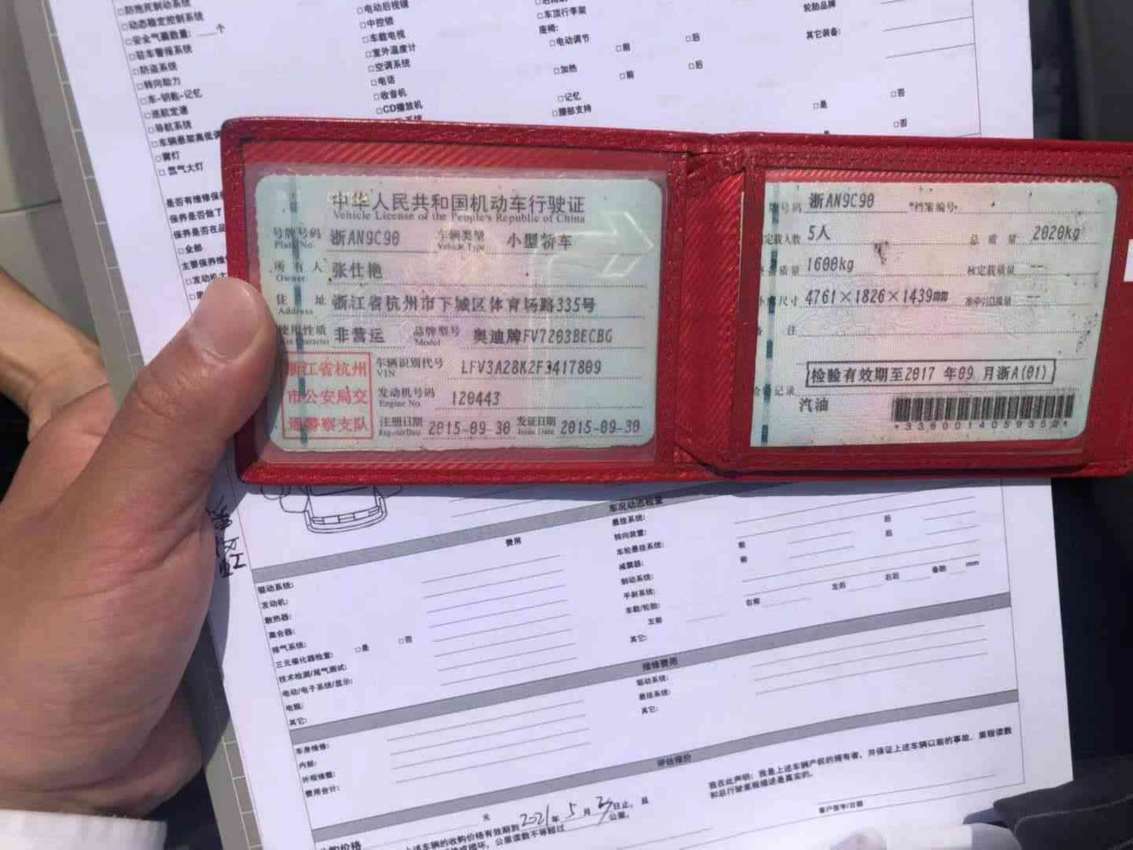 □防抱死制动系统
□动态稳定控制系统
□安全气囊数量: 个
□驻车警报系统
□防盗系统
□转向助力
□车-钥匙-记忆
□巡航定速
□导航系统
□车辆悬架高低调
□雾灯
□氙气大灯
□电动后视镜
□中控锁
□车载电视
□室外温度计
□空调系统
□电话
□收音机
□CD播放机
□车顶行李架
座椅:
□电动调节 □前 □后
□加热 □前 □后
□记忆
□腰部支持
□是 □否
□否
轮胎品牌
其它装备:
是否有维修保
保养是否做了
保养是否在品
□全部
主要保养维
□发动机大
中华人民共和国机动车行驶证
Vehicle License of the People's Republic of China
号牌号码 浙AN9C90 车辆类型 小型轿车
Plate No. Vehicle Type
所有人 张仕艳
Owner
住址 浙江省杭州市下城区体育场路335号
Address
使用性质 非营运 品牌型号 奥迪牌FV7203BECBG
Use Character Model
浙江省杭州市公安局交通警察支队
车辆识别代号 LFV3A28K2F3417809
VIN
发动机号码 120443
Engine No.
注册日期 2015-09-30 发证日期 2015-09-30
Register Date Issue Date
号码 浙AN9C90 档案编号
定载人数 5人 总质量 2020kg
质量 1600kg 核定载质量 --
尺寸 4761×1826×1439mm
备注
检验有效期至2017 年09 月浙A(01)
记录
汽油
费用
驱动系统:
发动机:
散热器:
离合器:
排气系统:
三元催化器检查: □是 □否
技术检测/尾气测试:
电动/电子系统/显示:
电瓶:
其它:
车况动态检查
悬挂系统:
转向装置: 前 后
车轮悬挂系统: 前 后
减震器:
制动系统:
手刹系统:
车载/轮胎: 右前 左后 右后 备胎 mm
左前
其它:
维修费用
车身维修:
内部:
外观维修:
费用合计:
驱动系统:
悬挂系统:
其它:
评估报价
元
上述车辆的收购价格有效期到2021年5月 日止, 且
公里读数不等超过 公里。
我在此声明: 我是上述车辆产权的拥有者, 并保证上述车辆以前的事故, 里程读数
和总行驶里程描述是真实的。
客户签字/日期